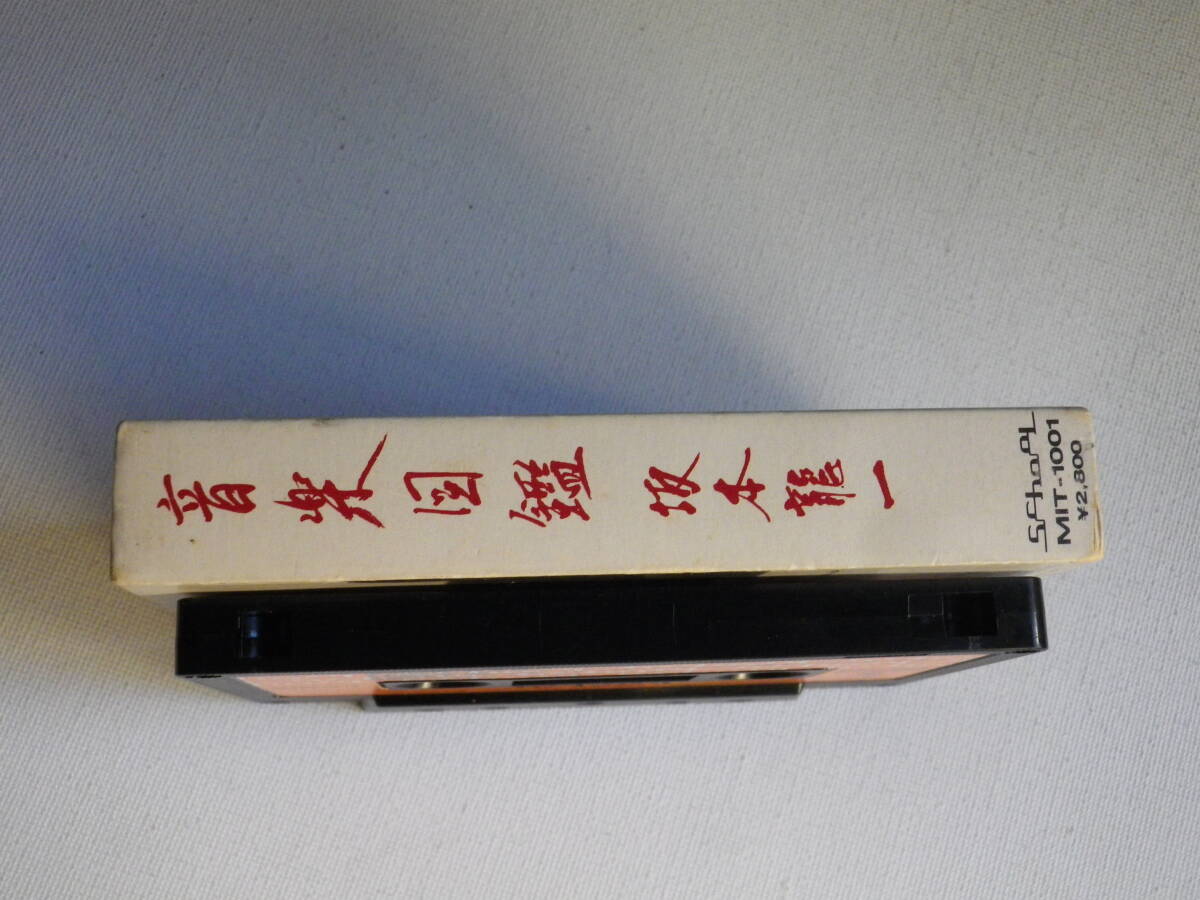 音楽図鑑 坂本龍一
School
MIT-1001
¥2,800